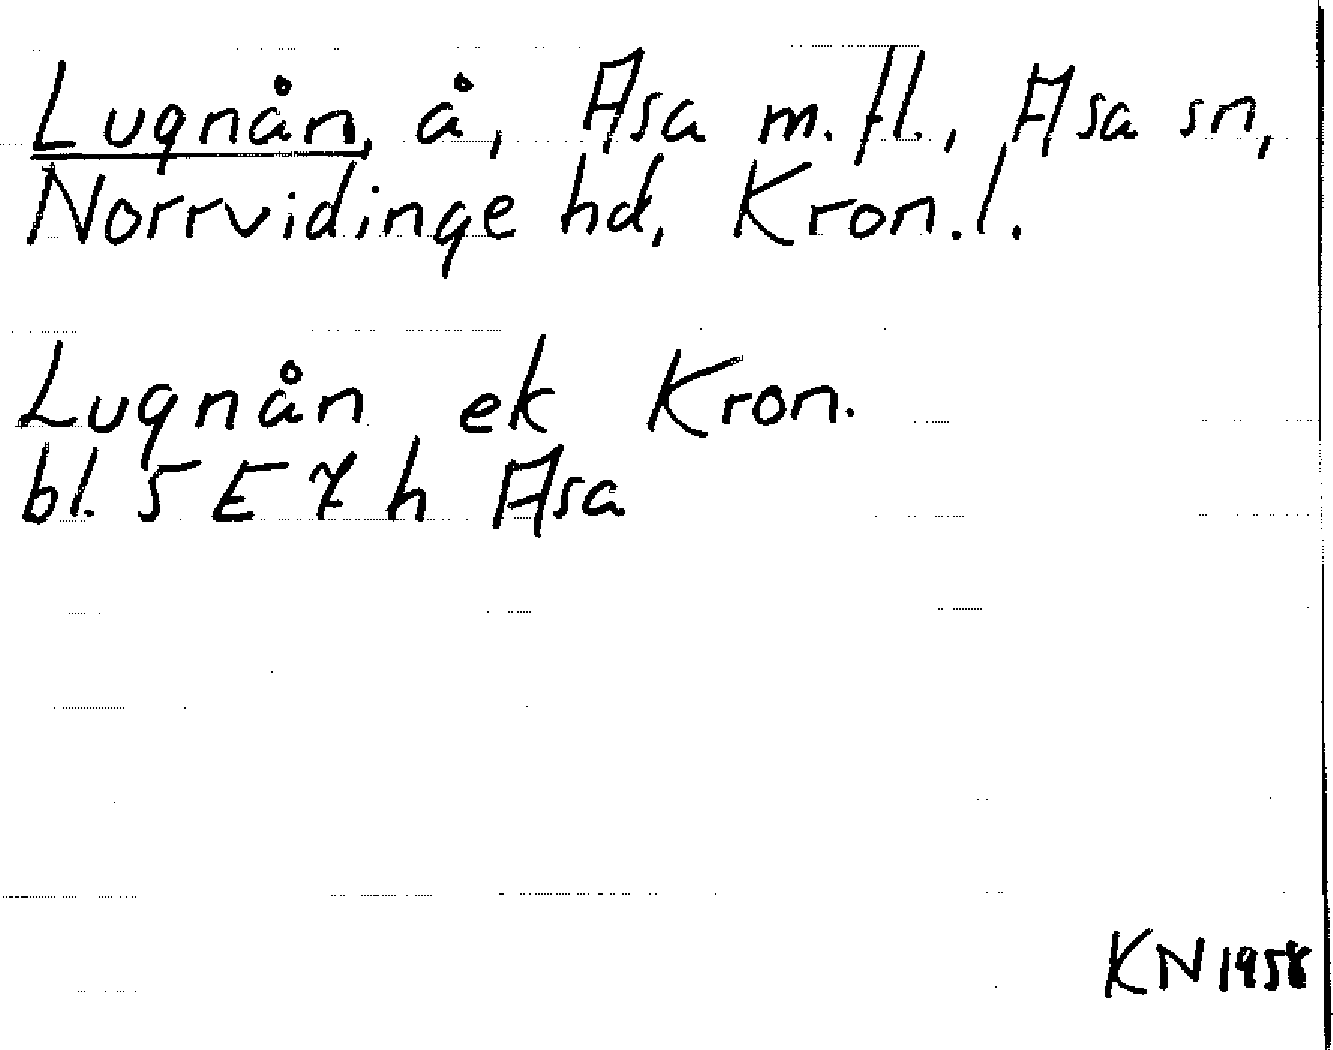 Lugnån, å, Asa m.fl., Asa sn,
Norrvidinge hd, Kron.l.
Lugnån ek Kron.
bl. 5 E 7 h Asa
KN 1958